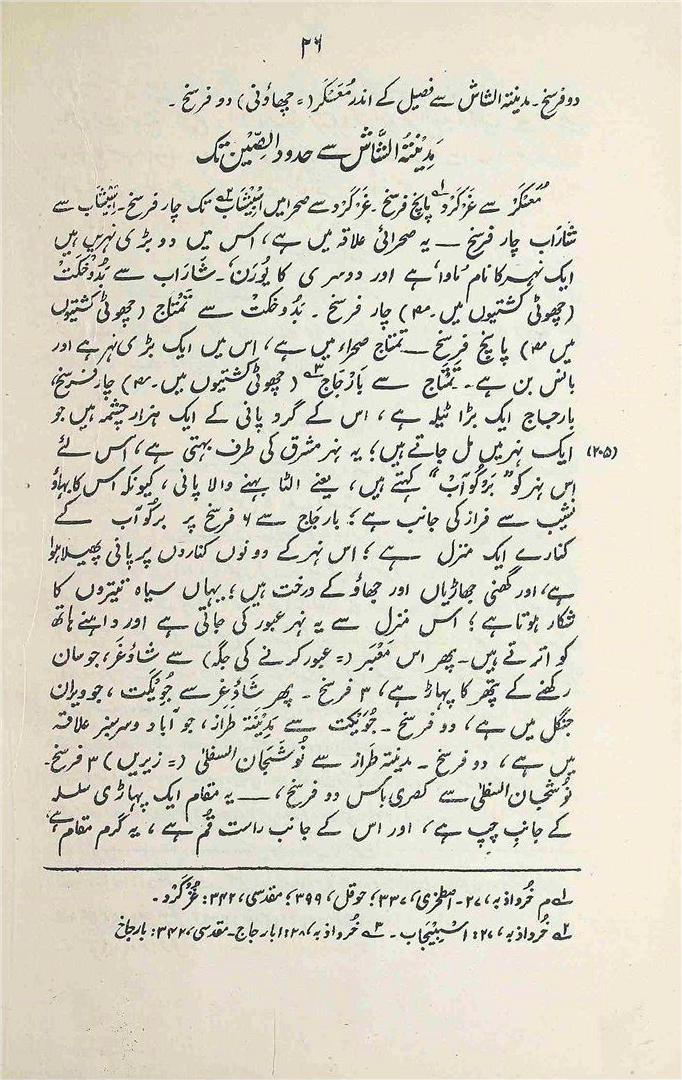 ۲۶
دو فرسخ۔ مدینتہ الشاش سے فصیل کے اندر مُعَسْکَر (= چھاؤنی) دو فرسخ۔
مَدِیْنَتُہ الشَّاش سے حدود الصِّیْن تک
مُعَسْکَر سے غَزْکَرْد۱ پانچ فرسخ۔ غَزْکَرْد سے صحرا میں اِسْبِیْشَاب۲ تک چار فرسخ۔ اِسْبِیْشَاب سے
شَارَاب چار فرسخ — یہ صحرائی علاقہ میں ہے، اس میں دو بڑی نہریں ہیں
ایک نہر کا نام 'ماوا' ہے اور دوسری کا یُوْرَن'۔ شَارَاب سے بَدُوْخْکَتْ
(چھوٹی کشتیوں میں۔ م۴) چار فرسخ۔ بَدُوخکَتْ سے تَمْتَاج (چھوٹی کشتیوں
میں م۴) پانچ فرسخ — تمتاج صحراء میں ہے، اس میں ایک بڑی نہر ہے اور
بانس بن ہے۔ تَمْتَاج سے بَارْجَاج۳ (چھوٹی کشتیوں میں۔ م۴) چار فرسخ،
بارجاج ایک بڑا ٹیلہ ہے، اس کے گرد پانی کے ایک ہزار چشمہ ہیں جو
(۲۰۵) ایک نہر میں مل جاتے ہیں؛ یہ نہر مشرق کی طرف بہتی ہے، اس لئے
اس نہر کو "بَرْکُوآب" کہتے ہیں، یعنے الٹا بہنے والا پانی، کیونکہ اس کا بہاؤ
نشیب سے فراز کی جانب ہے؛ بارجاج سے ۶ فرسخ پر برکُوآب کے
کنارے ایک منزل ہے؛ اس نہر کے دونوں کناروں پر پانی پھیلا ہوا
ہے، اور گھنی جھاڑیاں اور جھاؤ کے درخت ہیں؛ یہاں سیاہ تیتروں کا
شکار ہوتا ہے؛ اس منزل سے یہ نہر عبور کی جاتی ہے اور داہنے ہاتھ
کو اترتے ہیں۔ پھر اس مَعْبَر (= عبور کرنے کی جگہ) سے شاوَغَر، جو سان
رکھنے کے پتھر کا پہاڑ ہے، ۳ فرسخ۔ پھر شاوَغر سے جُوِیْکَت، جو ویران
جنگل میں ہے، دو فرسخ۔ جُوِیْکَت سے مَدِیْنَۃ طَرَاز، جو آباد و سرسبز علاقہ
میں ہے، دو فرسخ۔ مدینتہ طَراز سے نُوشَجَان السفلیٰ (= زیریں) ۳ فرسخ۔
نُوشَجان السفلیٰ سے کصری باس دو فرسخ، — یہ مقام ایک پہاڑی سلسلہ
کے جانبِ چپ ہے، اور اس کے جانب راست قُم ہے، یہ گرم مقام ہے،
۱ م خُرداذبہ، ۲۷۔ اصطخری، ۳۳۷؛ حوقل، ۳۹۹؛ مقدسی، ۳۴۲: غُزْکَرْد۔
۲ خُرداذبہ، ۲۷: اسْبِیْجَاب۔ ۳ خُرداذبہ، ۲۸: ابارجاج۔ مقدسی، ۳۴۲: بارجاخ